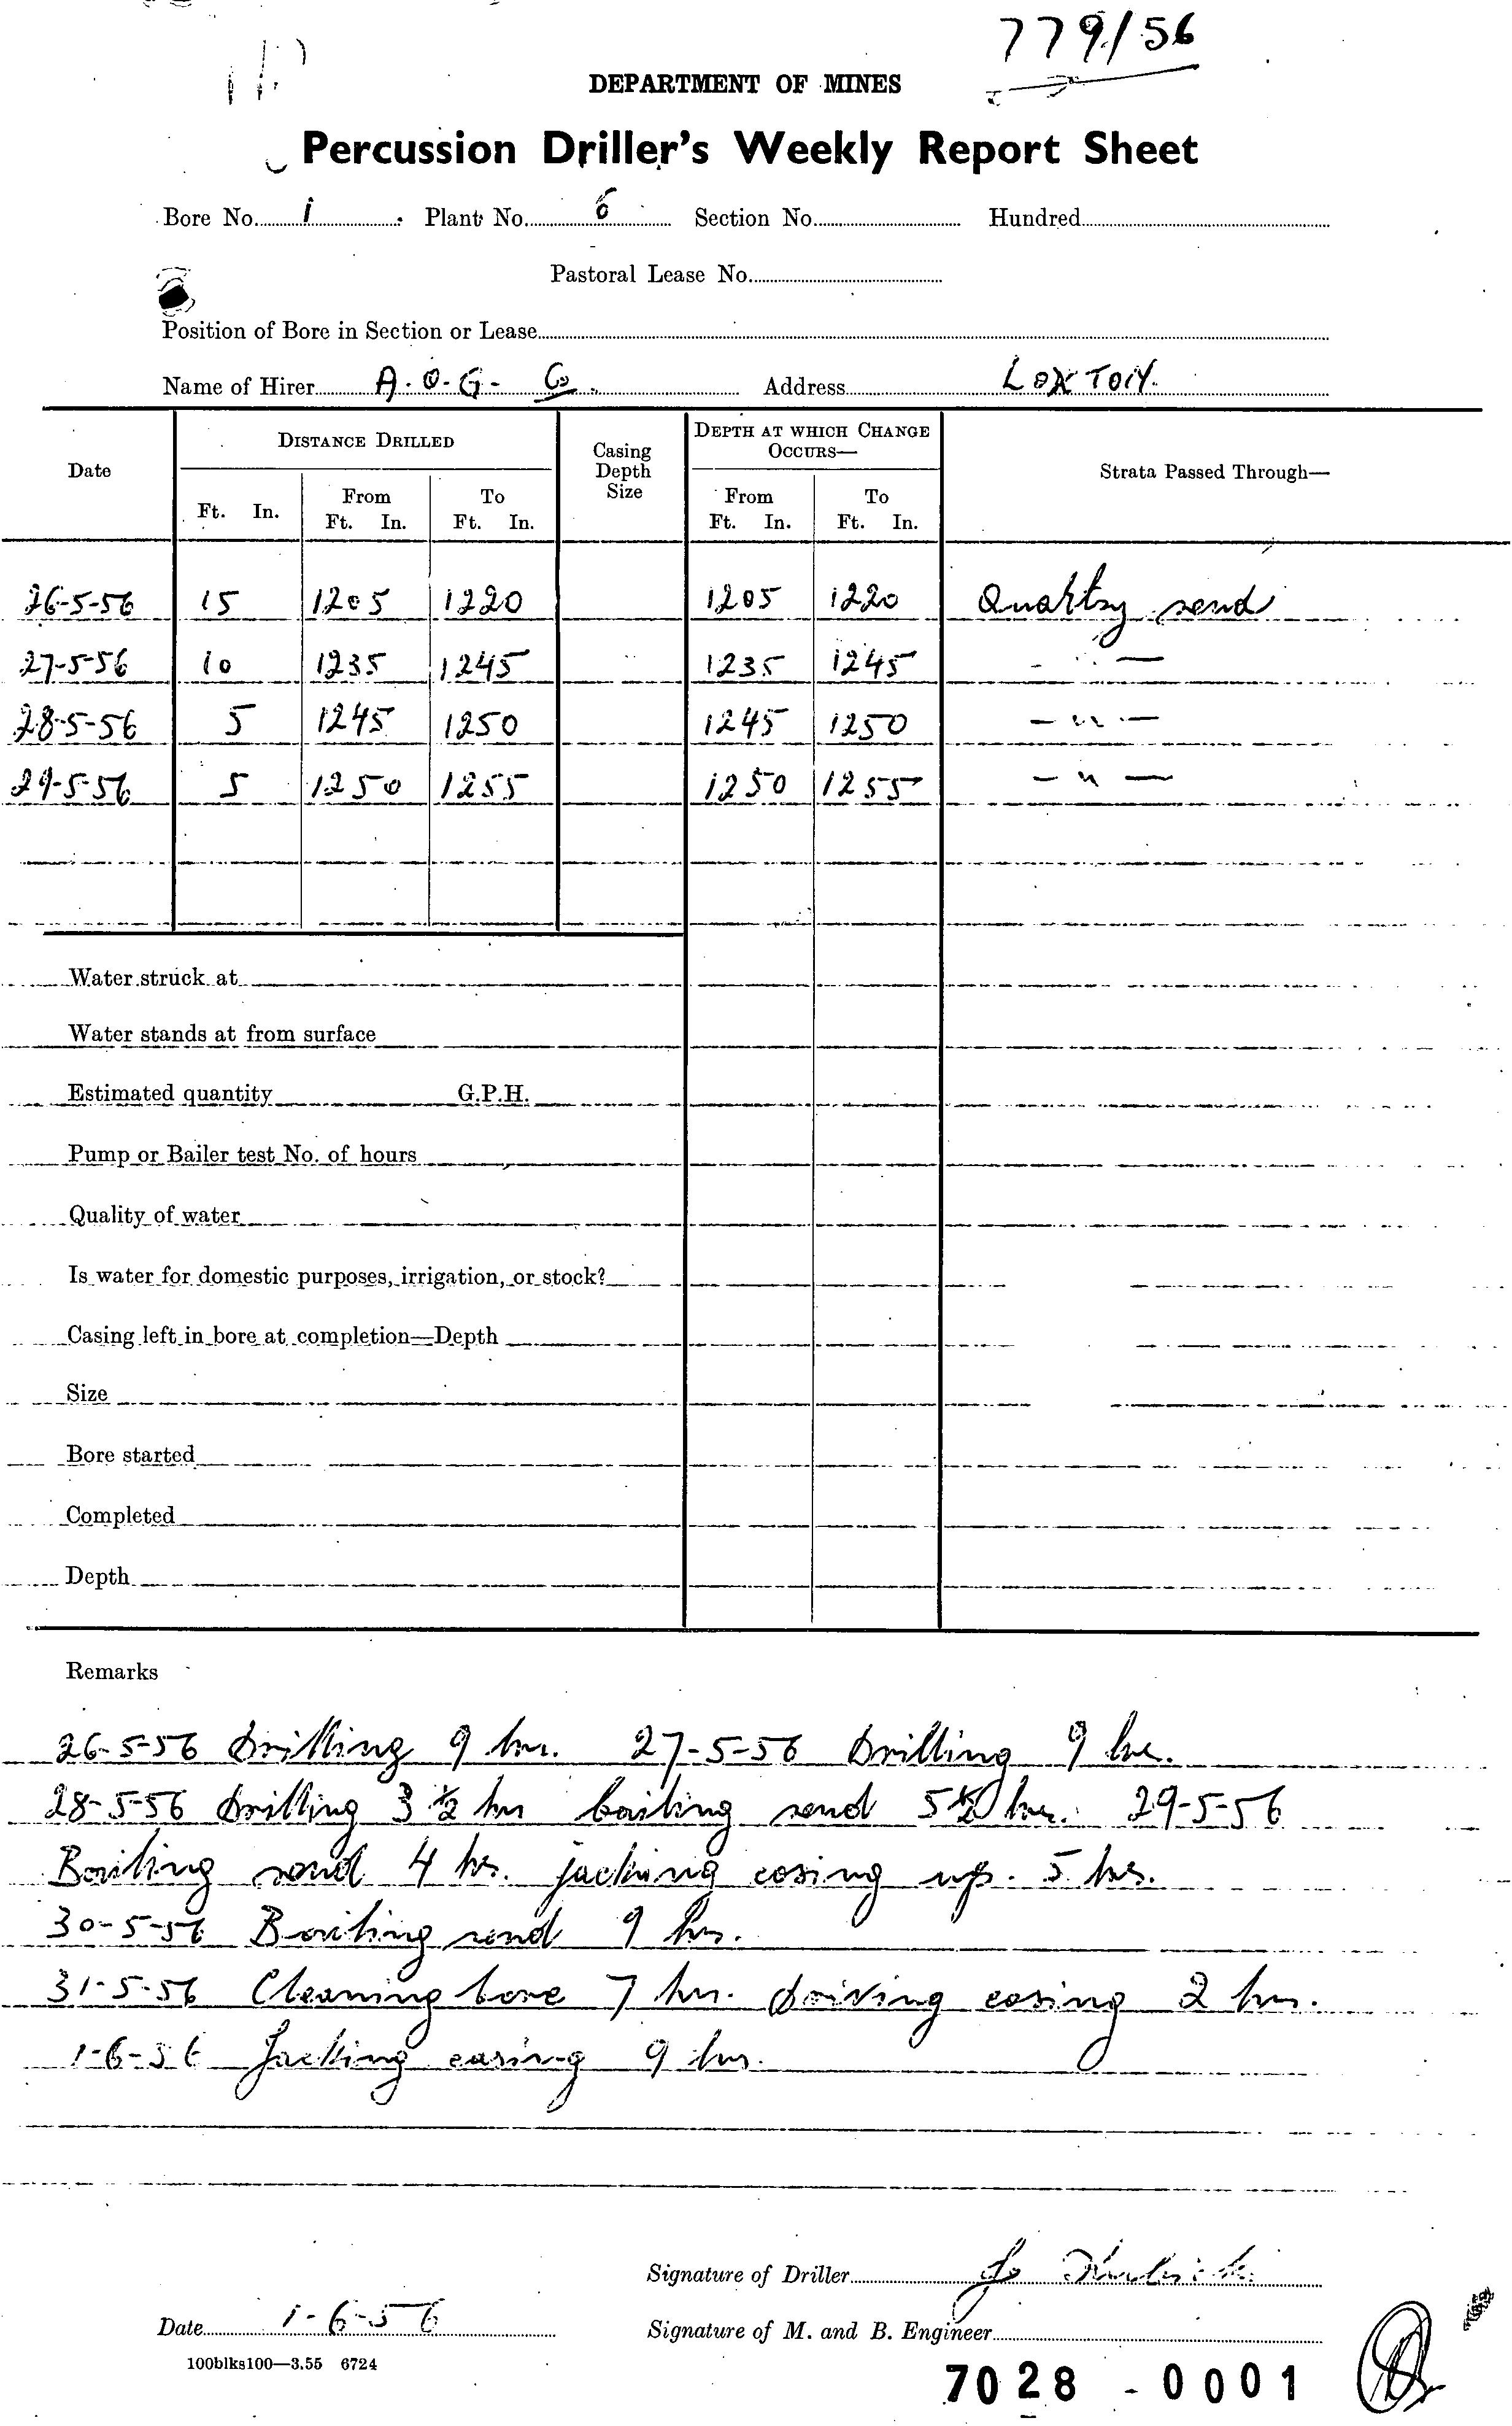 779/56
DEPARTMENT OF MINES
Percussion Driller's Weekly Report Sheet
Bore No. 1 Plant No. 6 Section No. Hundred
Pastoral Lease No.
Position of Bore in Section or Lease
Name of Hirer A.O.G. Co. Address LOXTON.
Date DISTANCE DRILLED Casing Depth Size DEPTH AT WHICH CHANGE OCCURS— Strata Passed Through—
Ft. In. From Ft. In. To Ft. In. From Ft. In. To Ft. In.
26-5-56 15 1205 1220 1205 1220 Quartzy sand
27-5-56 10 1235 1245 1235 1245 - " -
28-5-56 5 1245 1250 1245 1250 - " -
29-5-56 5 1250 1255 1250 1255 - " -
Water struck at
Water stands at from surface
Estimated quantity G.P.H.
Pump or Bailer test No. of hours
Quality of water
Is water for domestic purposes, irrigation, or stock?
Casing left in bore at completion—Depth
Size
Bore started
Completed
Depth
Remarks
26-5-56 Drilling 9 hrs. 27-5-56 Drilling 9 hrs.
28-5-56 Drilling 3½ hrs bailing sand 5½ hrs. 29-5-56
Bailing sand 4 hrs. jacking casing up. 5 hrs.
30-5-56 Bailing sand 9 hrs.
31-5-56 Cleaning bore 7 hrs. driving casing 2 hrs.
1-6-56 Jacking casing 9 hrs.
Signature of Driller
Date 1-6-56
Signature of M. and B. Engineer
100blks100—3.55 6724
7028 - 0001